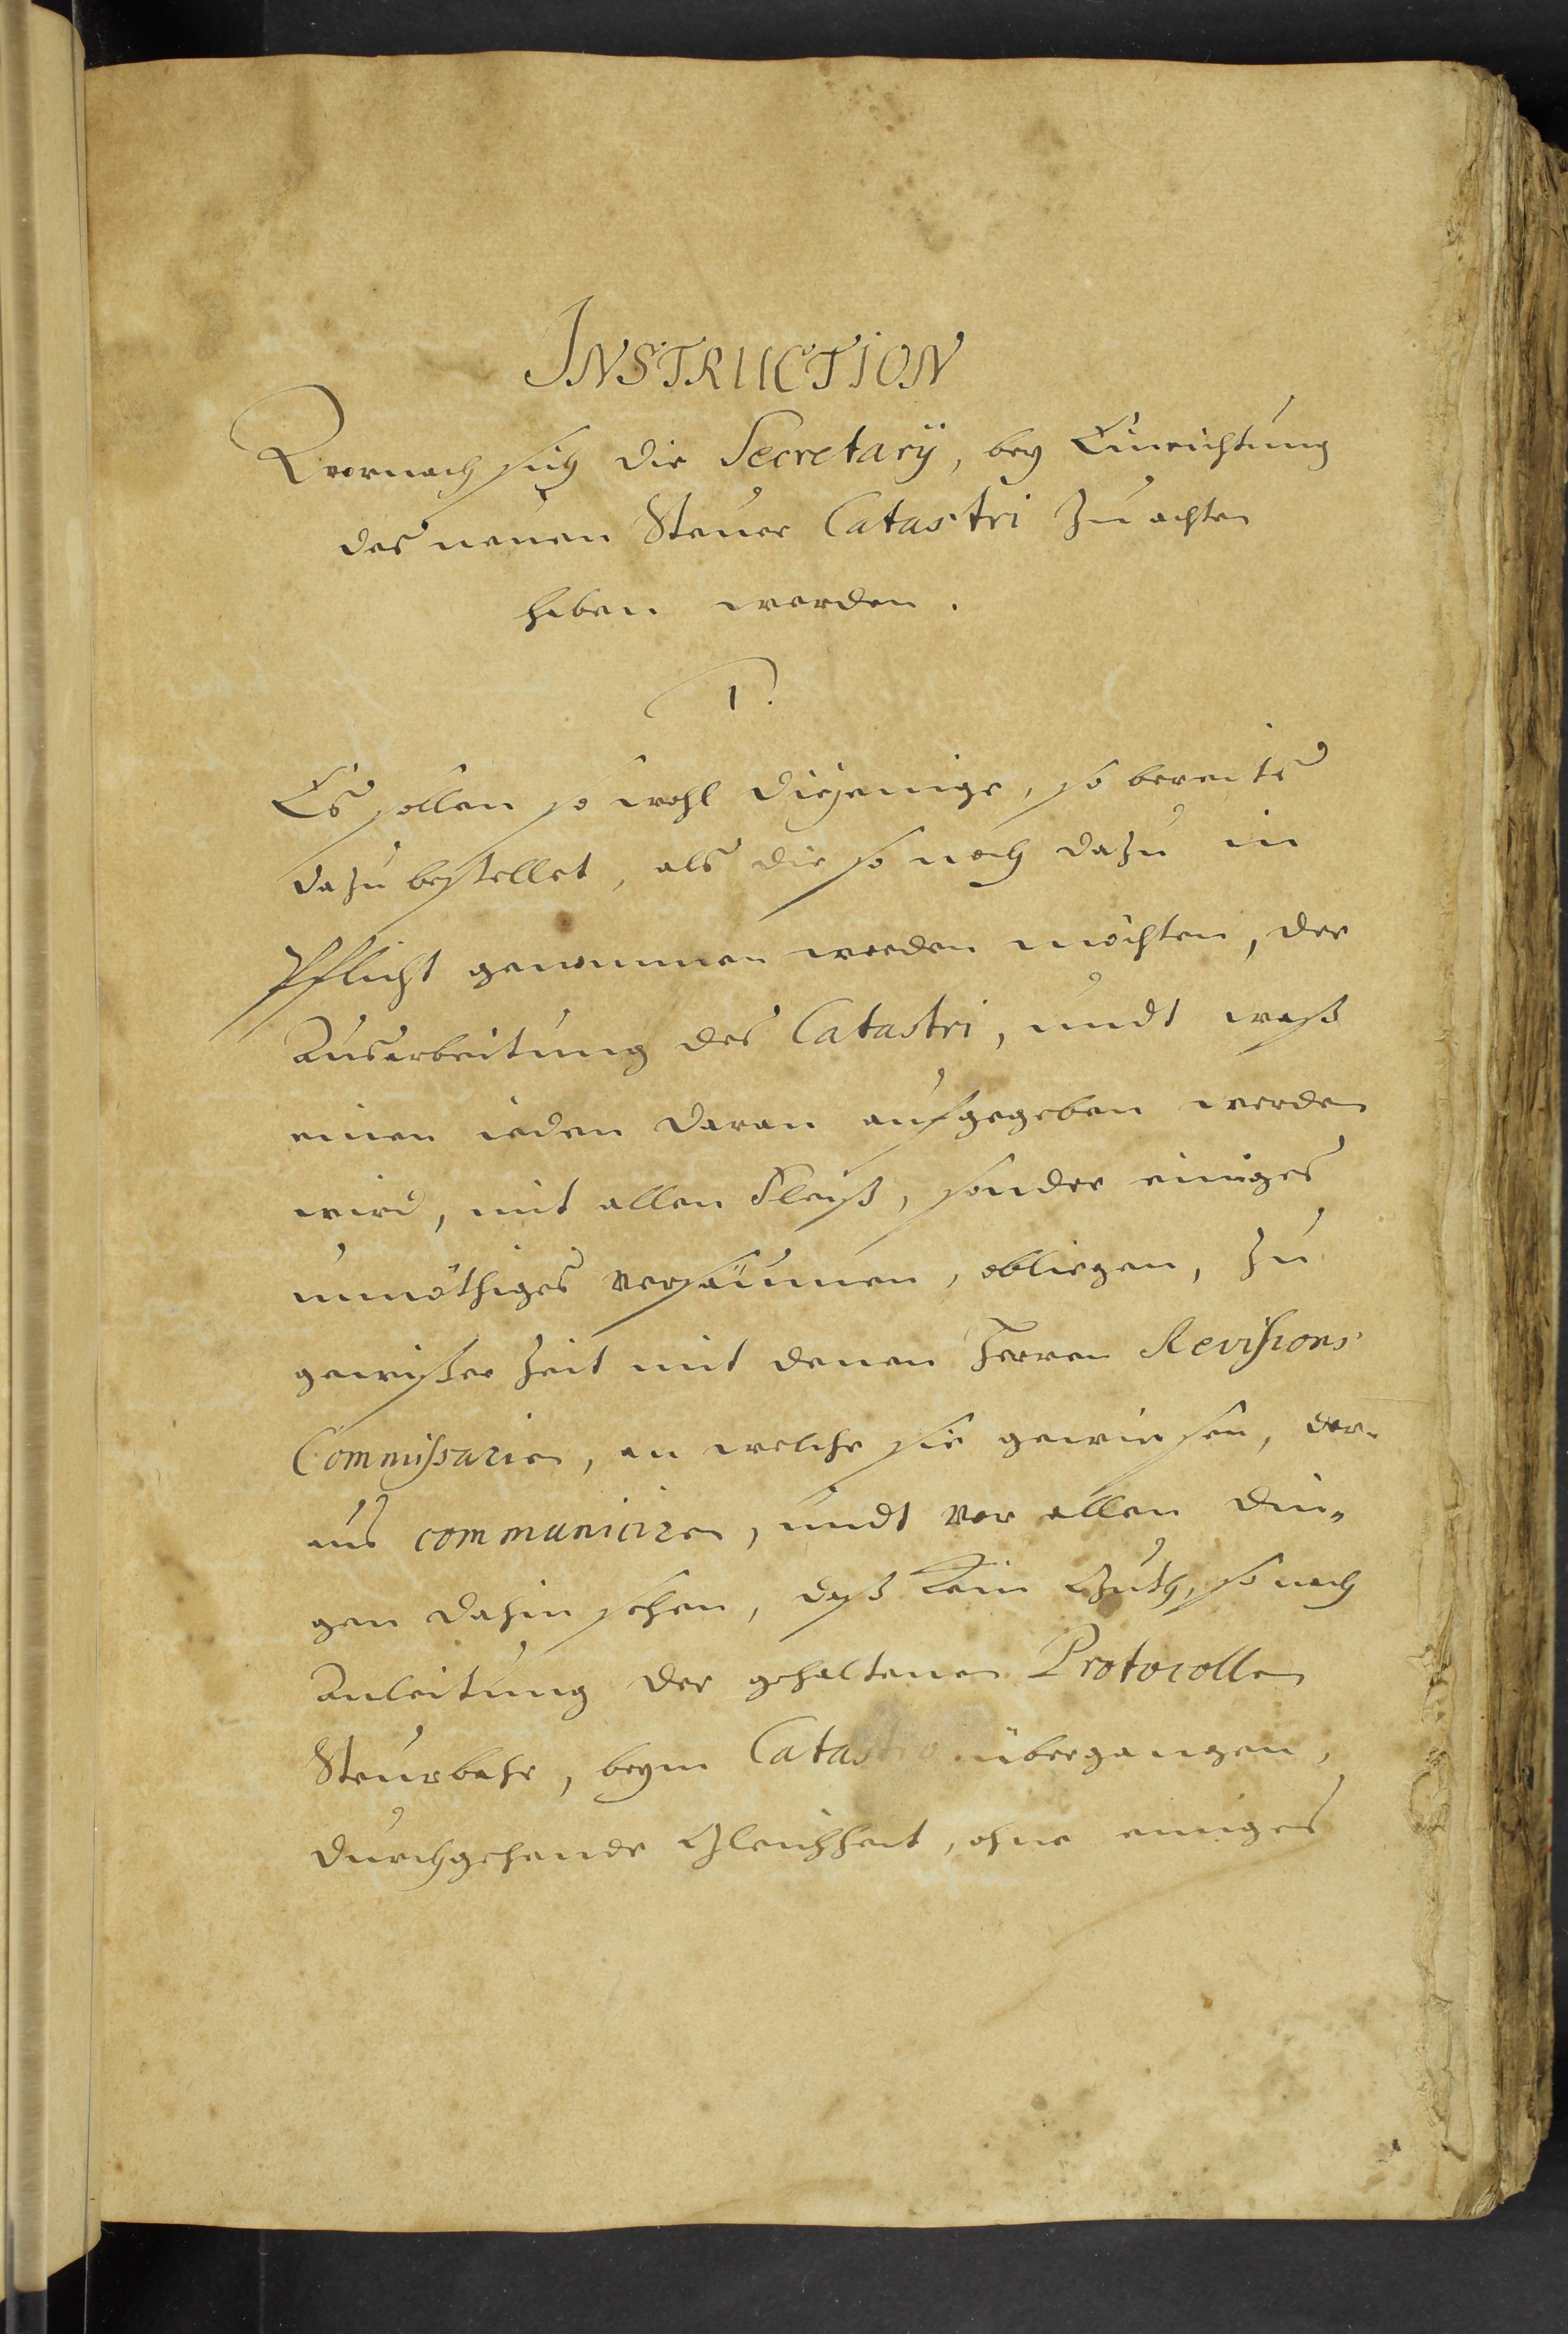 INSTRUCTION
Wornach sich die Secretarÿ, bey Einrichtung
des neuen Steuer Catastri zu achten
haben werden.
1.
Es sollen so wohl diejenige, so bereits
dazu bestellet, als die so noch dazu in
Pflicht genommen werden möchten, der
Ausarbeitung des Catastri, undt waß
einen ieden daran aufgegeben werden
wird, mit allen Fleiß, sonder einiges
unnöthiges versäumen, obliegen, zu
gewißer Zeit mit denen Herren Revisions
Commissarien, an welche sie gewiesen, dar-
aus communiciren, undt vor allen din„
gen dahin sehen, daß kein Guth, so nach
Anleitung der gehaltenen Protocollen
Steurbahr, beym Catastro übergangen,
durchgehende Gleichheit, ohne einiges